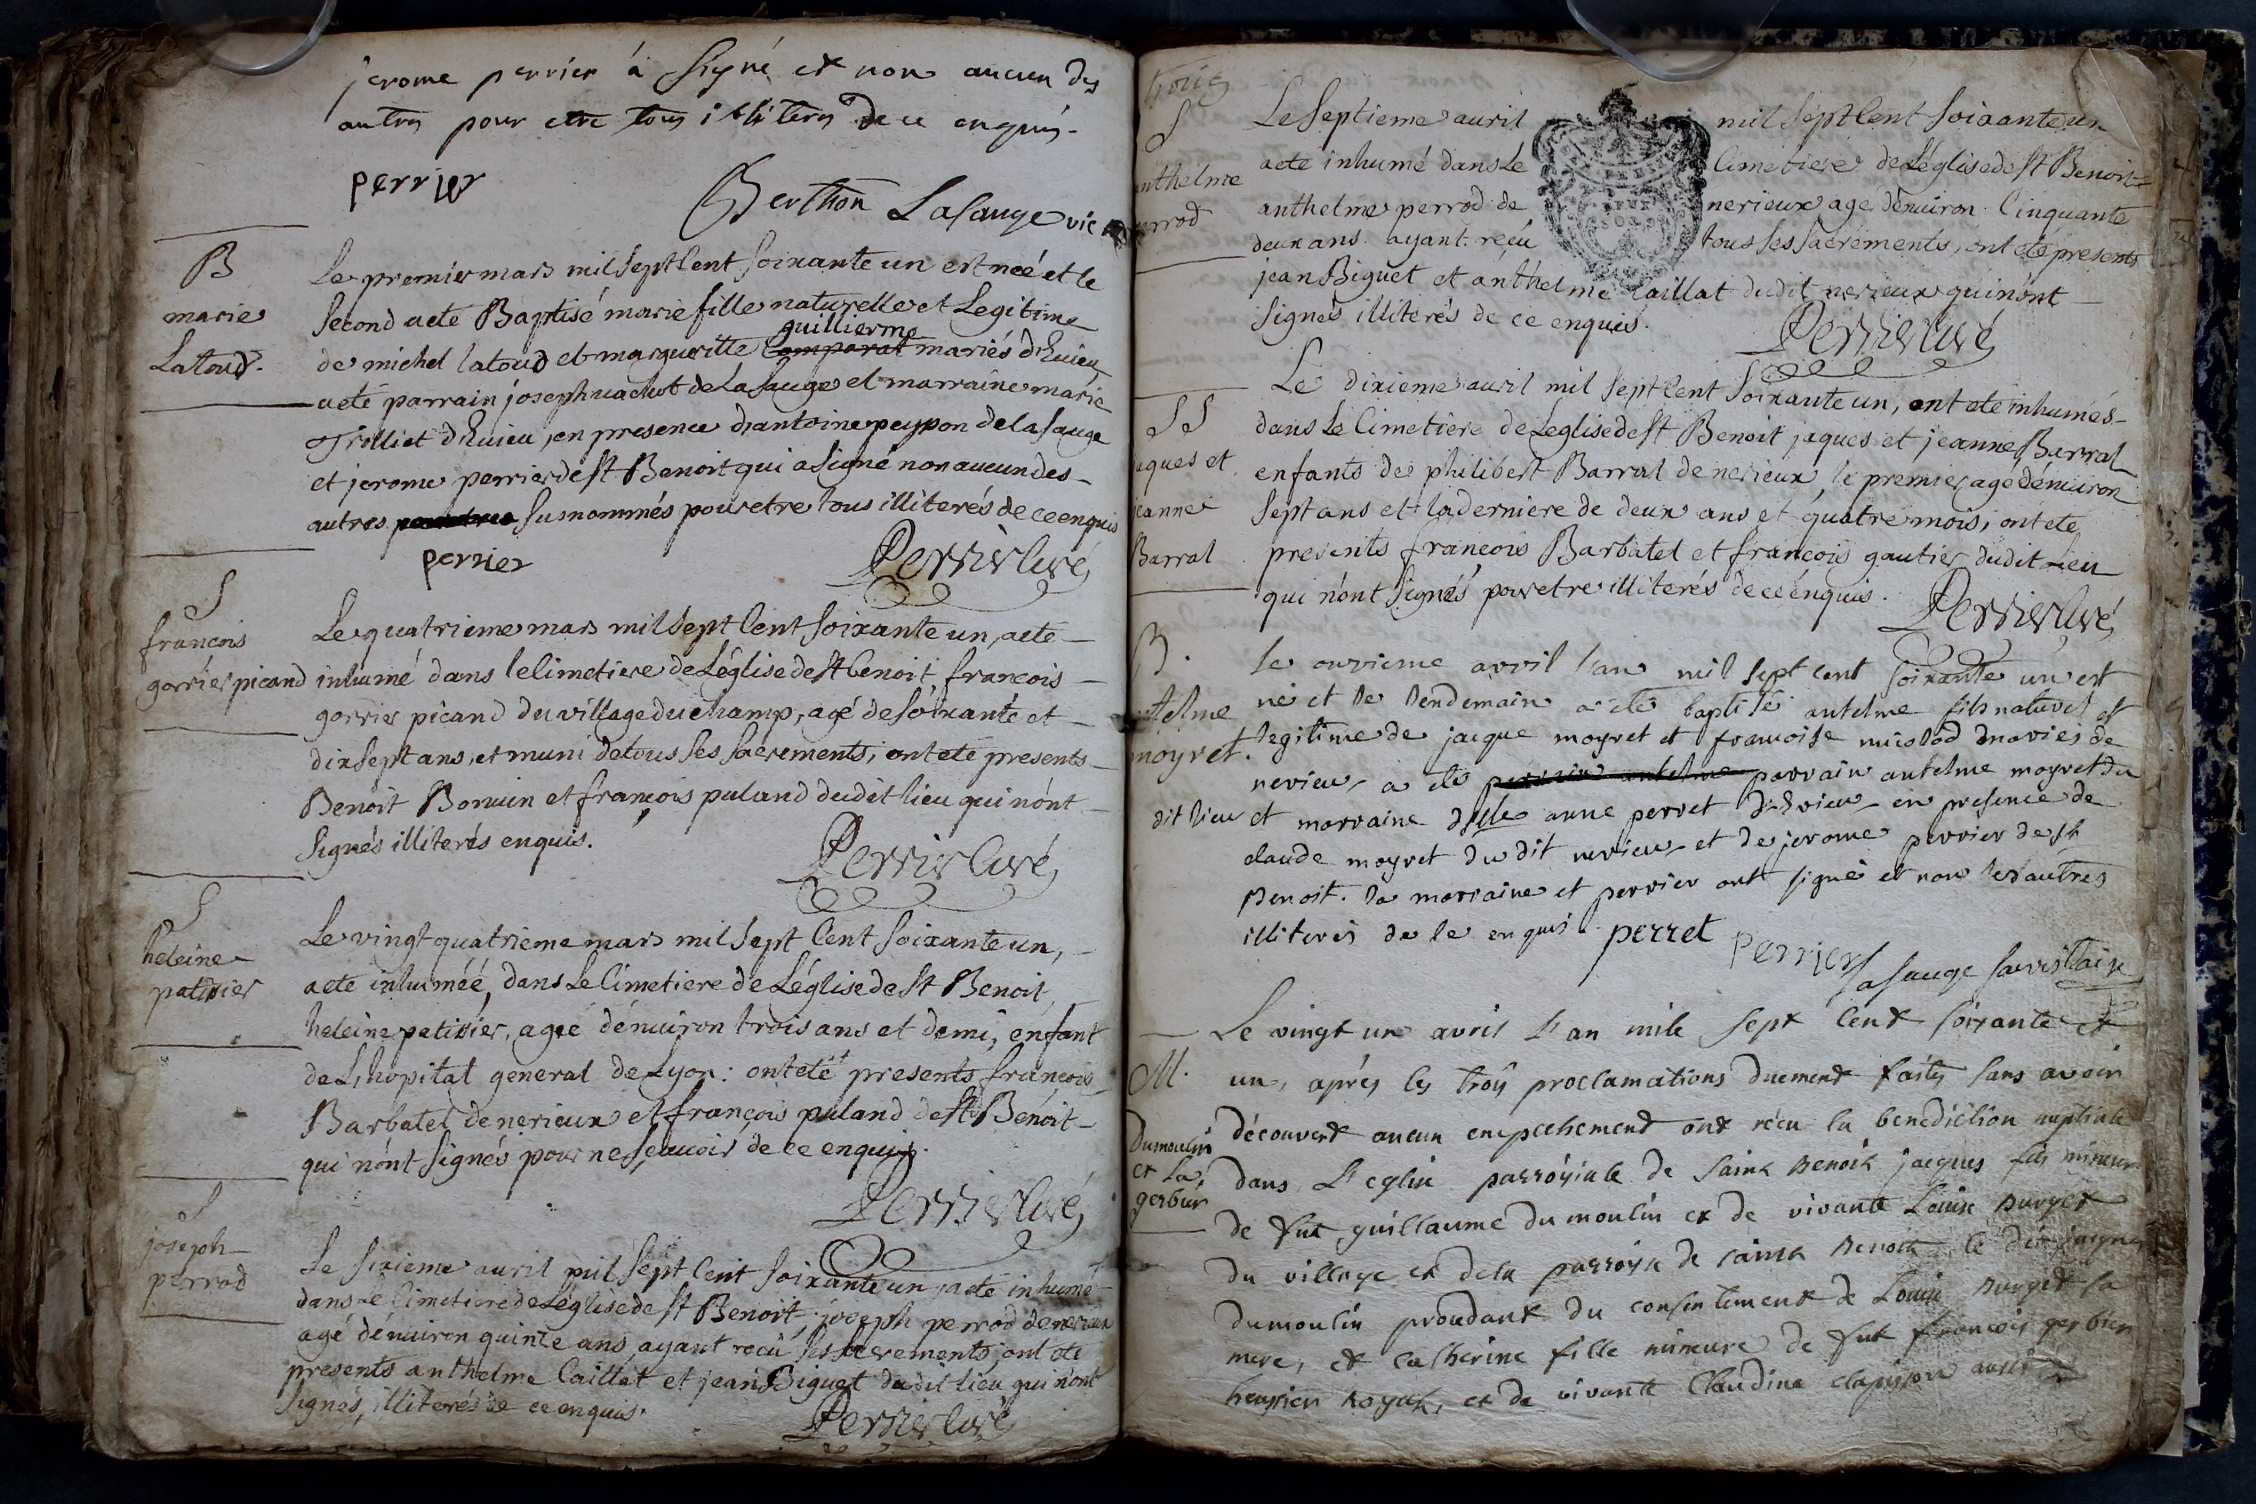 jerome perrier á signé et non aucun des
autres pour etre tous illiterés de ce enquis.
perrier
Berthon Lasauge vic
B
marie
Latoud.
Le premier mars mil sept Cent soixante un est neé et le
second aeté Baptisé marie fille naturelle et Legitime
guillierme
de michel latoud et marguerite Comparat mariés d'huieu
aeté parrain joseph vachot de la sauge et marraine marie
Trolliet d'huieu, en presence d'antoine peyson de la sauge
et jerome perrier de st Benoit qui a signé non aucun des
autres susnommés pour etre tous illiterés de ce enquis
perrier
Perrier Curé
S
francois
gorrier picand
Le quatrieme mars mil sept Cent soixante un, aeté
inhumé dans le Cimetiere de L'église de st Benoit francois
gorrier picand du village du champ, agé de soixante et
dix sept ans, et muni de tous ses sacrements, ont eté presents
Benoit Bonuin et francois puland dudit lieu qui n'ont
signés illiterés enquis.
Perrier Curé
S
heleine
patisier
Le vingt quatrieme mars mil sept Cent soixante un,
aeté inhumeé, dans Le Cimetiere de L'église de st Benoit,
heleine patisier, ageé d'enuiron trois ans et demi, enfant
de L'hopital general de Lyon: ont eté presents francois
Barbatet de nerieux et francois puland de st Benoit
qui n'ont signés pour ne sçauoir de ce enquis.
Perrier Curé
S
joseph
perrod
Le sixieme auril mil sept Cent soixante un, aeté inhumé
dans le Cimetiere de L'église de st Benoit, joseph perrod de nerieux
agé d'enuiron quinze ans ayant reçu ses sacrements, ont eté
presents anthelme Caillat et jean Biguet dudit lieu qui n'ont
signés, illiterés de ce enquis.
Perrier Curé
S
anthelme
perrod
Le septieme auril mil sept Cent soixante un
aeté inhumé dans Le Cimetiere de L'église de st Benoit
anthelme perrod de nerieux agé d'enuiron Cinquante
deux ans ayant reçu tous ses sacrements, ont eté presents
jean Biguet et anthelme Caillat dudit nerieux qui n'ont
signés illiterés de ce enquis.
Perrier Curé
SS
jaques et
jeanne
Barral
Le dixieme auril mil sept Cent soixante un, ont eté inhumés
dans Le Cimetiere de L'eglise de st Benoit jaques et jeanne Barral
enfants de philibert Barral de nerieux, le premier agé d'enuiron
sept ans et la derniere de deux ans et quatre mois, ont eté
presents francois Barbatet et francois gautier dudit Lieu
qui n'ont signés pour etre illiterés de ce enquis.
Perrier Curé
B.
antelme
moyret.
le onzieme avril l'an mil sept cent soixante un est
né et le lendemain a eté baptisé antelme fils naturel et
legitime de jacque moyret et francoise mariés de
nerieu, a eté parrain antelme moyret du
dit lieu et marraine dlle anne perret d'huieu en presence de
claude moyret du dit nerieu et de jerome perrier de st
Benoit. la marraine et perrier ont signé et non les autres
illiterés de ce enquis. perret
perrier
Lasauge sacristain
M.
Dumoulin
et La
gerbier
Le vingt un avril L'an mile sept Cent soixante et
un, aprés les trois proclamations duement faites sans avoir
découvert aucun empechement ont récu la benediction nuptiale
dans L'eglise parroisiale de saint Benoit jacques fils mineur
de fut guillaume Dumoulin et de vivante Louise Burget
du village et de la parroisse de saint Benoit le dit jacques
dumoulin procedant du consentement de Louise Burget sa
mere, et catherine fille mineure de fut francois gerbier
huissier Royal, et de vivante Claudine